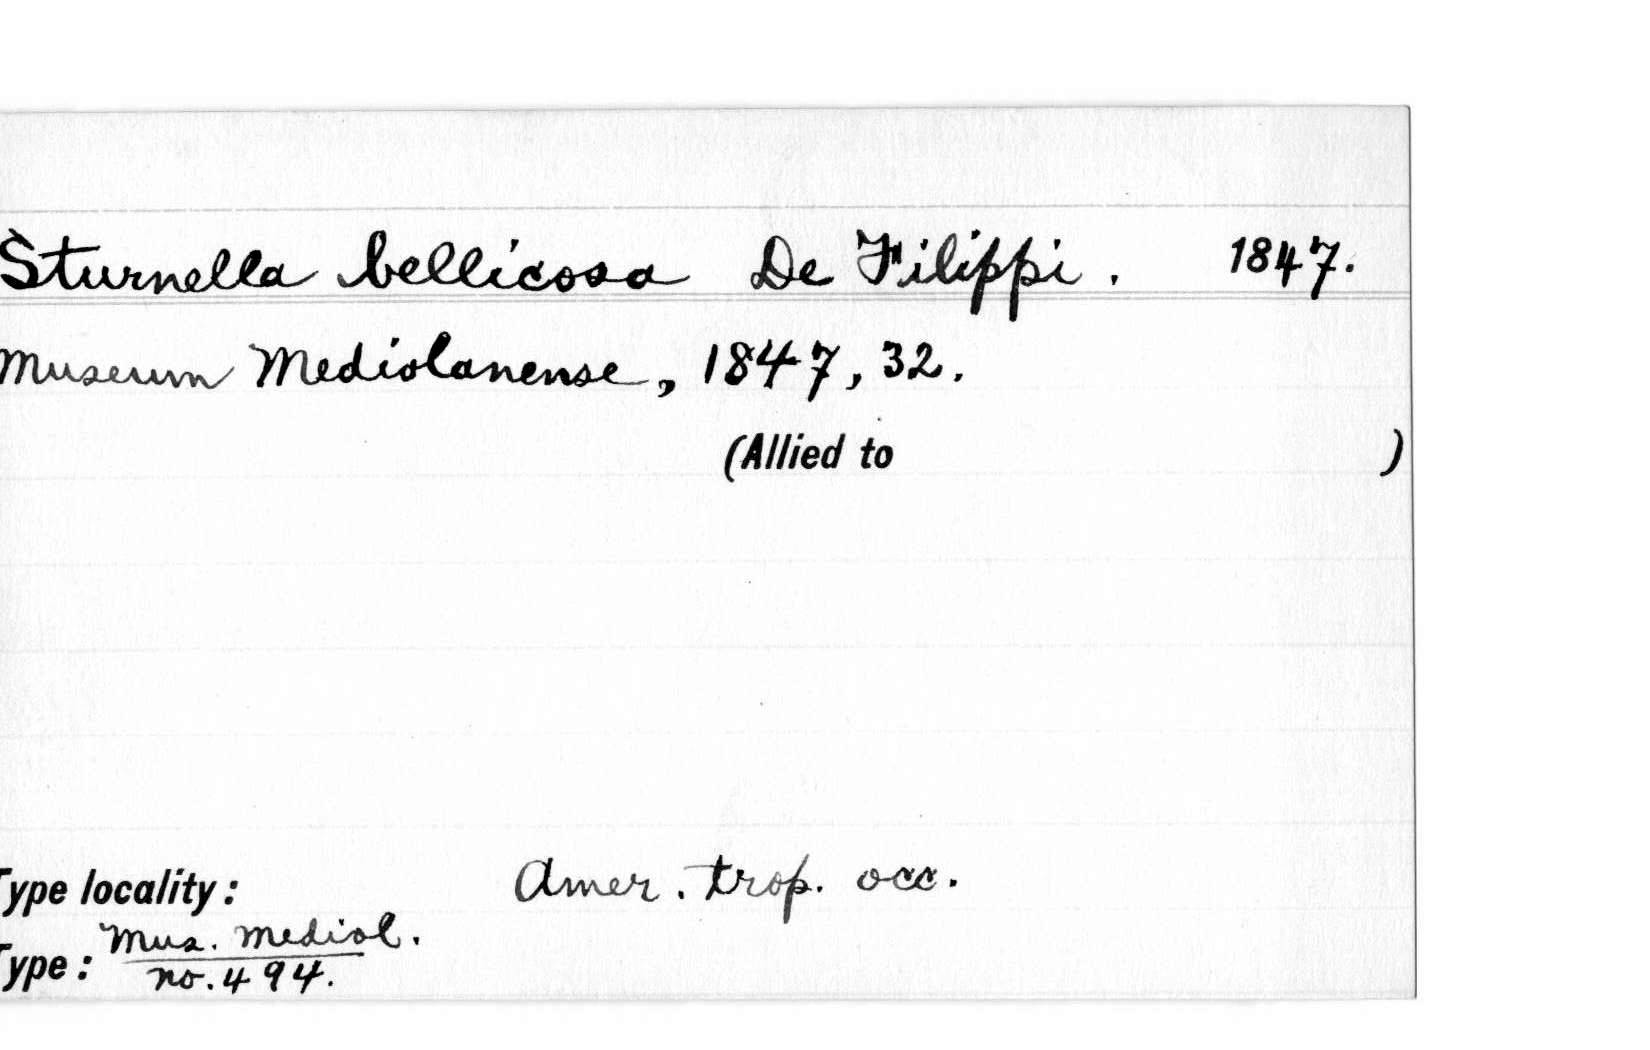 Sturnella bellicosa De Filippi. 1847.
Museum Mediolanense, 1847, 32.
(Allied to )
Type locality: Amer. trop. occ.
Type: Mus. Mediol.
no. 494.